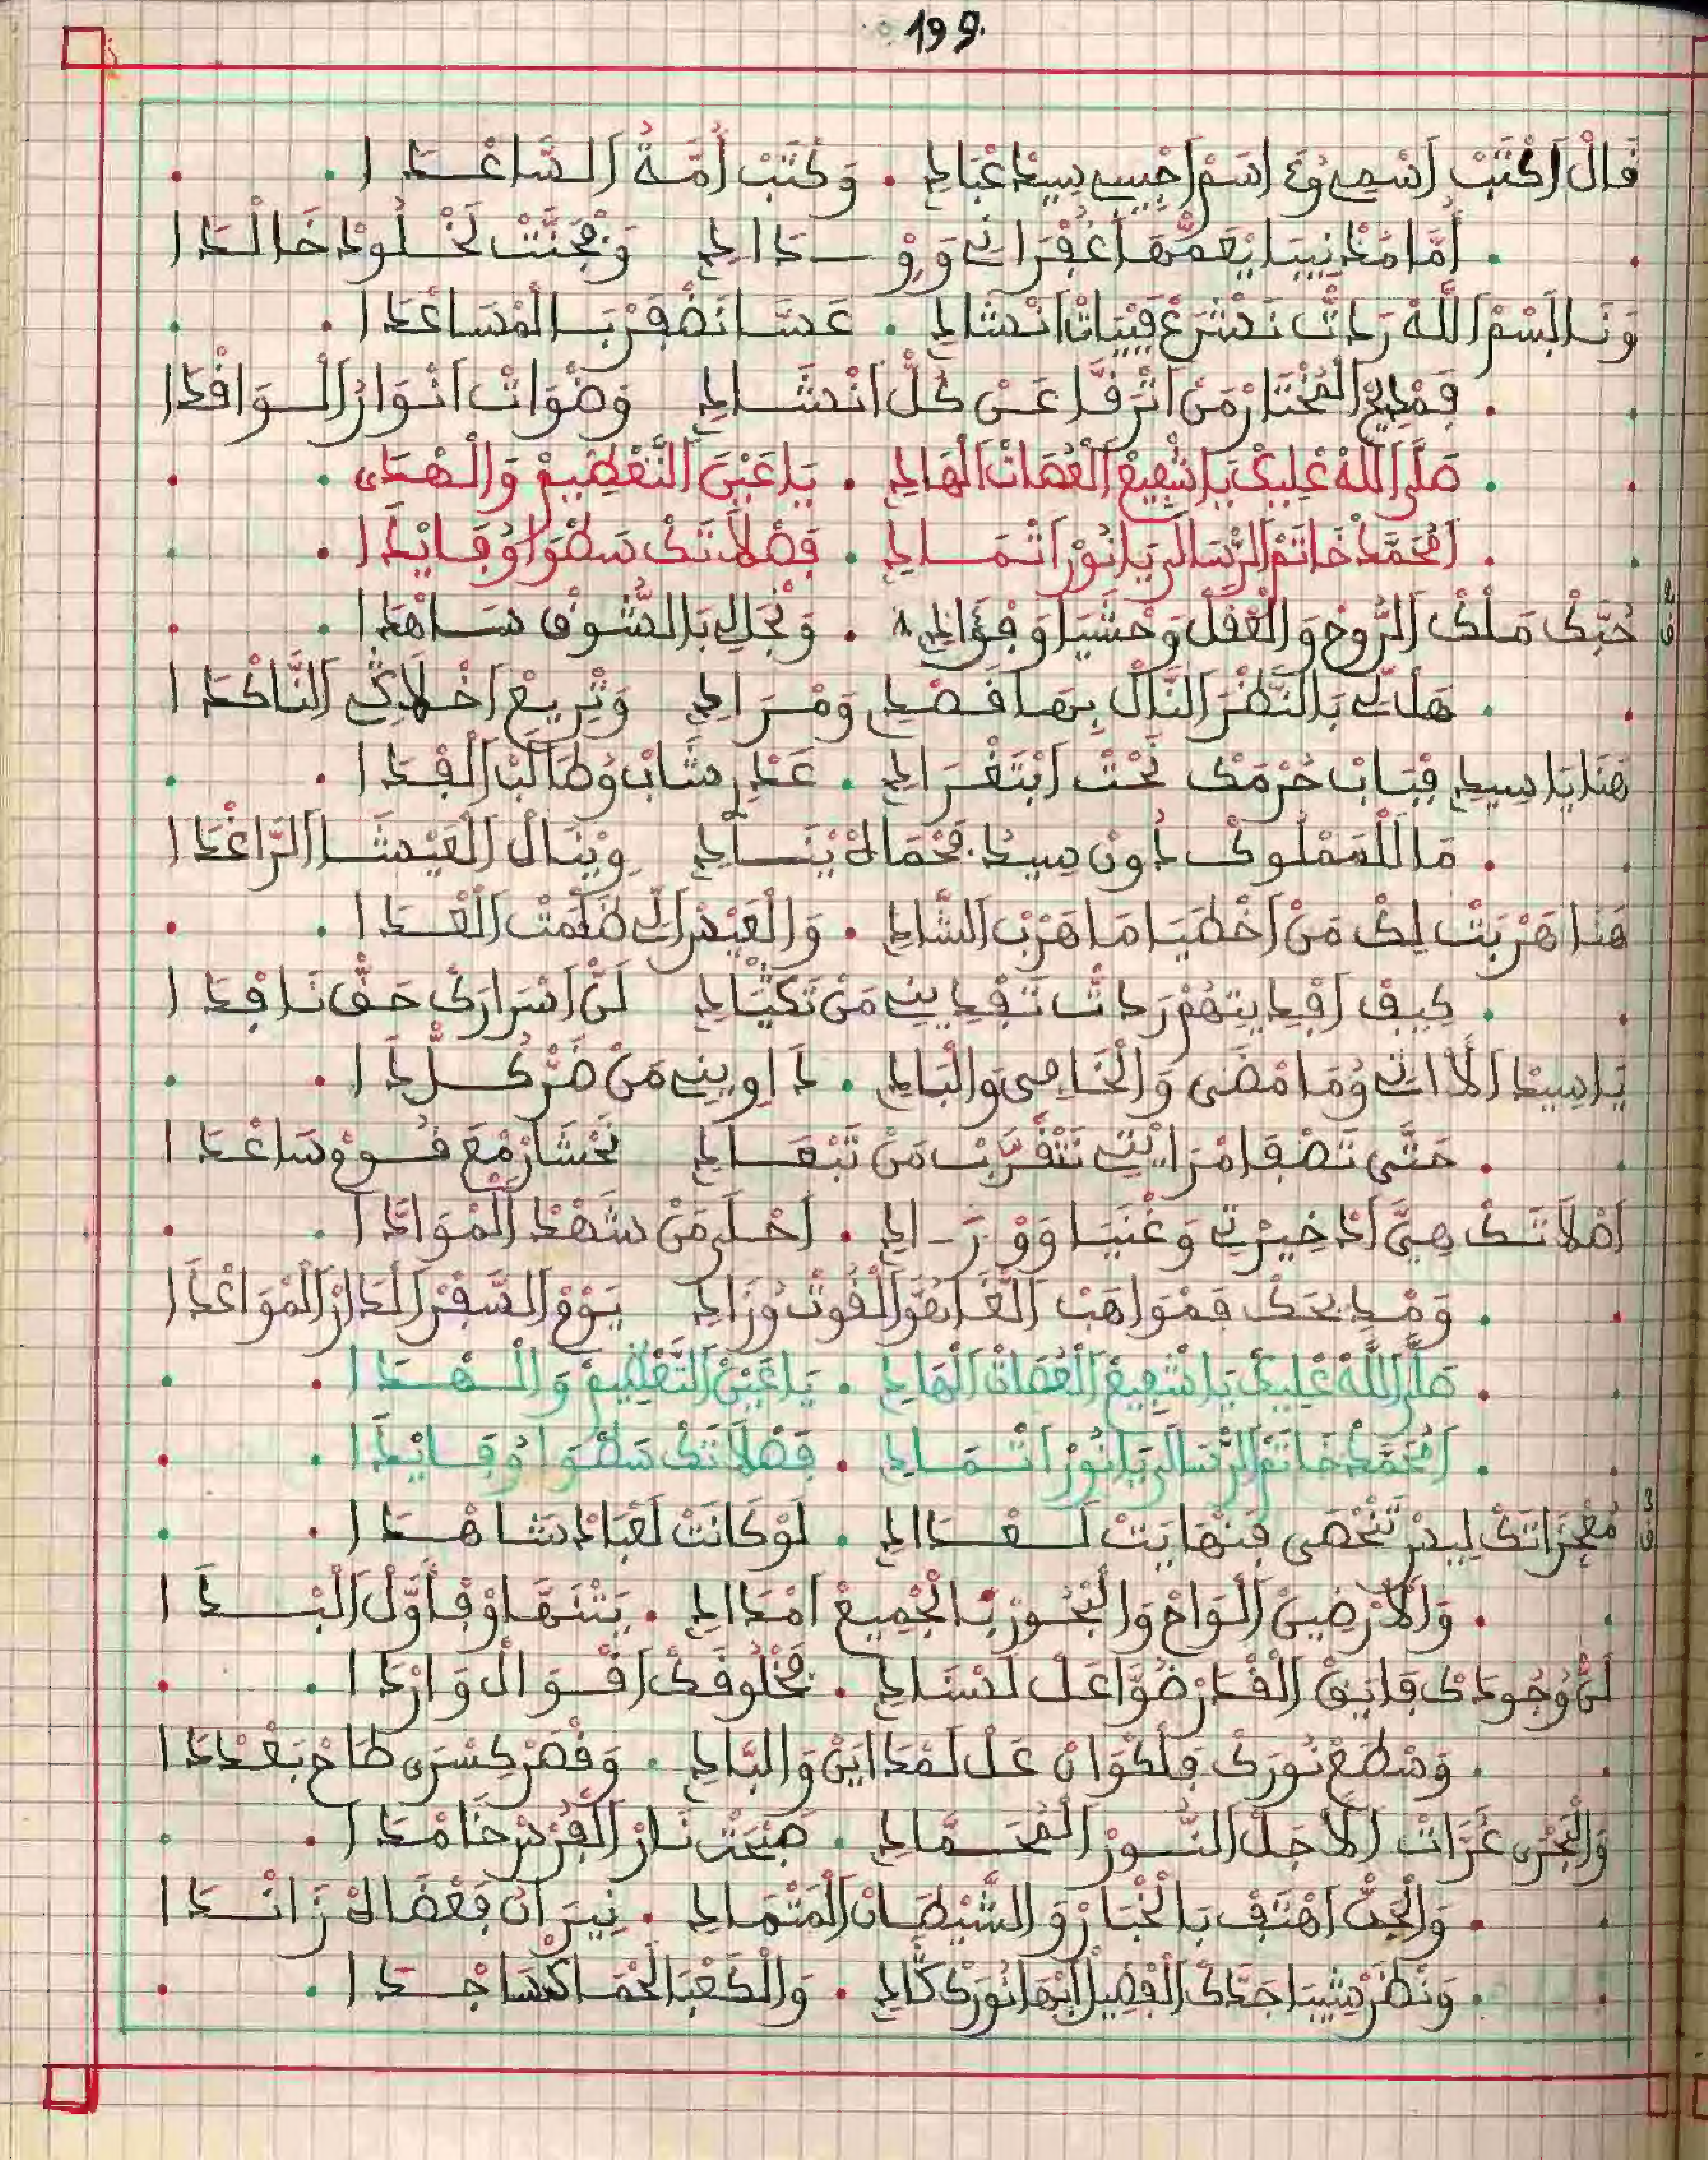 199.
قَالْ اَكْتَبْ اَسْمِي وُمَعَ اسَمْ اَحْبِيبِي سِيدْ عْبَادِي . وَكْتَبْ اُمَّةُ السَّاعْدَا
أَمَّا مُدْنِيبَا يْعَمّْهَا غُفْرَانِي وَوْدَادِي وَفْجَنَّتْ لَخْلُودْ خَالْدَا
وَنَا بَسْمْ اللَّهْ رَدْتْ نَشْرَعْ فَبْيَاتْ اَنْشَادِي . عَسَّا نَضْفَرْ بَالْمْسَاعْدَا
فَمْدِيحْ الْمُخْتَارْ مَنْ اَتْرَقَّا عَنْ كُلّْ اَنْشَادِي وَضْوَاتْ اَنْوَارُ الْوَافْدَا
صَلَّى اللَّهْ عْلِيكْ يَا شْفِيعْ الْعُصَاتْ الْهَادِي . يَا عَيْنْ التَّعْظِيمْ وَالْهْدَى
اَمْحَمَّدْ خَاتَمْ الرْسَالَ يَا نُورْ اَتْمَادِي . فَضْلاَتَكْ سَطْوَا وُفَايْدَا
2 ق
حُبَّكْ مْلَكْ الرُّوحْ وَالْعْقَلْ وَحْشَيَا وَفْؤَادِي . وَنْجَالِي بَالشُّوقْ سَاهْدَا
هَلْ لِي بَالنَّظْرَ اَلنَّالْ بِهَا قَصْدِي وَمْرَادِي وَتْرِيعْ اَخْلاَقِي النَّاكْدَا
هَنَا يَا سِيدِي فْبَابْ حُرْمَكْ نَحْتْ اَبْتَغْرَادِي . عَدِّ شَابْ وُطَالَبْ الْفْدَا
مَا لَلْمَمْلُوكْ دُونْ سِيدُ فَحْمَاهْ يْنَادِي وِيْنَالْ الْعِيشَا الرَّاغْدَا
هَنَا هْرَبْتْ لِكْ مَنْ اَخْطَيَا مَا هْرَبْ الشَّادِي . وَالْعِيسْ اَلِي ظَلْمَتْ الْعْدَا
كِيفْ اَفْدِيتِهُمْ رَدْتْ تَفْدِينِي مَنْ تَكْيَادِي لَنّْ اَسْرَارَكْ حَقّْ نَافْدَا
يَا سِيدْ اَلاَّ اتِي وُمَا مْضَى وَالْخَاصِي وَالْبَادِي . دَاوِينِي مَنْ ضَرّْ كُلّْ دَا
حَتَّى تَصْفَا مْرَايْتِي نَتْقَرَّبْ مَنْ تَبْعَادِي نَحْشَارْ مْعَ قُومْ سَاعْدَا
اَصْلاَتَكْ هِيَّ اَدْخِيرْتِي وَغْنَيَا وَوْرَادِي . اَحْلَى مَنْ شَهْدْ الْمْوَايْدَا
وَمْدِيحَكْ فَمْوَاهَبْ الْغْدَا هُوَ الْقُوتْ وُزَادِي يَوْمْ السّْفَرْ اَلْدَارْ الْمْوَاعْدَا
صَلَّى اللَّهْ عْلِيكْ يَا شْفِيعْ الْعُصَاتْ الْهَادِي . يَا عَيْنْ التَّعْظِيمْ وَالْهْدَا
اَمْحَمَّدْ خَاتَمْ الرْسَالَ يَا نُورْ اَتْمَادِي . فَضْلاَتَكْ سَطْوَا وُفَايْدَا
3 ق
مُعْجَزَاتَكْ لِيسْ تَنْحْصَى فَنْهَايَتْ لَعْدَادِي . لَوْ كَانَتْ لَعْبَادْ شَاهْدَا
وَالاَرْضِينْ اَلْوَاحْ وَالْبْحُورْ بَالْجْمِيعْ اَمْدَادِي . يَتْنَهَّاوْ فَاَوَّلْ الْبْدَا
لَنّْ وُجُودَكْ فَايْقْ الْقْدَرْ ضْوَا عَلْ لَسْيَادِي . مَخْلُوقَكْ اَقْوَالْ وَارْدَا
وَسْطَعْ نُورَكْ فَلَكْوَانْ عَلْ لَمْدَايَنْ وَالْبَادِي . وَقْصَرْ كِسْرَى طَاحْ بَعْدْدَا
وَالْجِنْ غَرَّاتْ اَلاَجَلْ النُّورْ الْمُحَمَّادِي . صَبْحَتْ نَارْ الْفُرْسْ خَامْدَا
وَالْجِنّْ اَهْتَفْ بَالْخْبَارْ وَالشَّيْطَانْ الْمَتْمَادِي . نِيرَانْ فَعْضَاهْ زَانْدَا
وَنْظَرْ شَيْبَا جَدَّكْ الْفْضِيلْ اَبْهَا نُورَكْ گَادِي . وَالْكَعْبَ لَحْمَاكْ سَاجْدَا